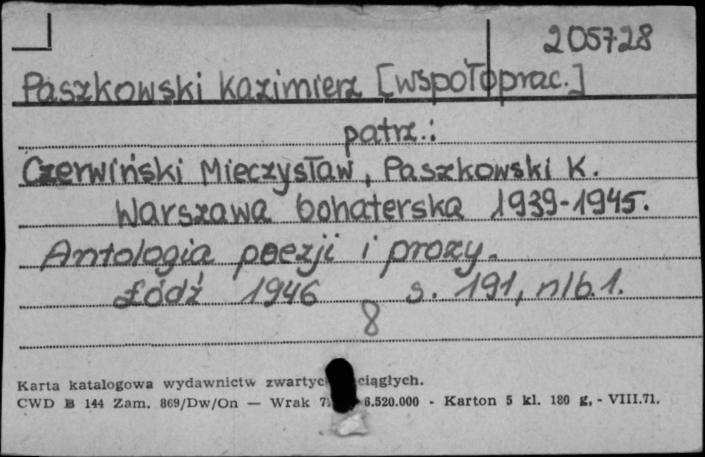 205728
Paszkowski Kazimierz [współoprac.]
patrz.:
Czerwiński Mieczysław, Paszkowski K.
Warszawa bohaterska 1939-1945.
Antologia poezji i prozy.
Łódź 1946 s. 191, nlb. 1.
8
Karta katalogowa wydawnictw ciągłych.
CWD B 144 Zam. 869/Dw/On — Wrak 6.520.000 - Karton 5 kl. 180 g, - VIII.71.